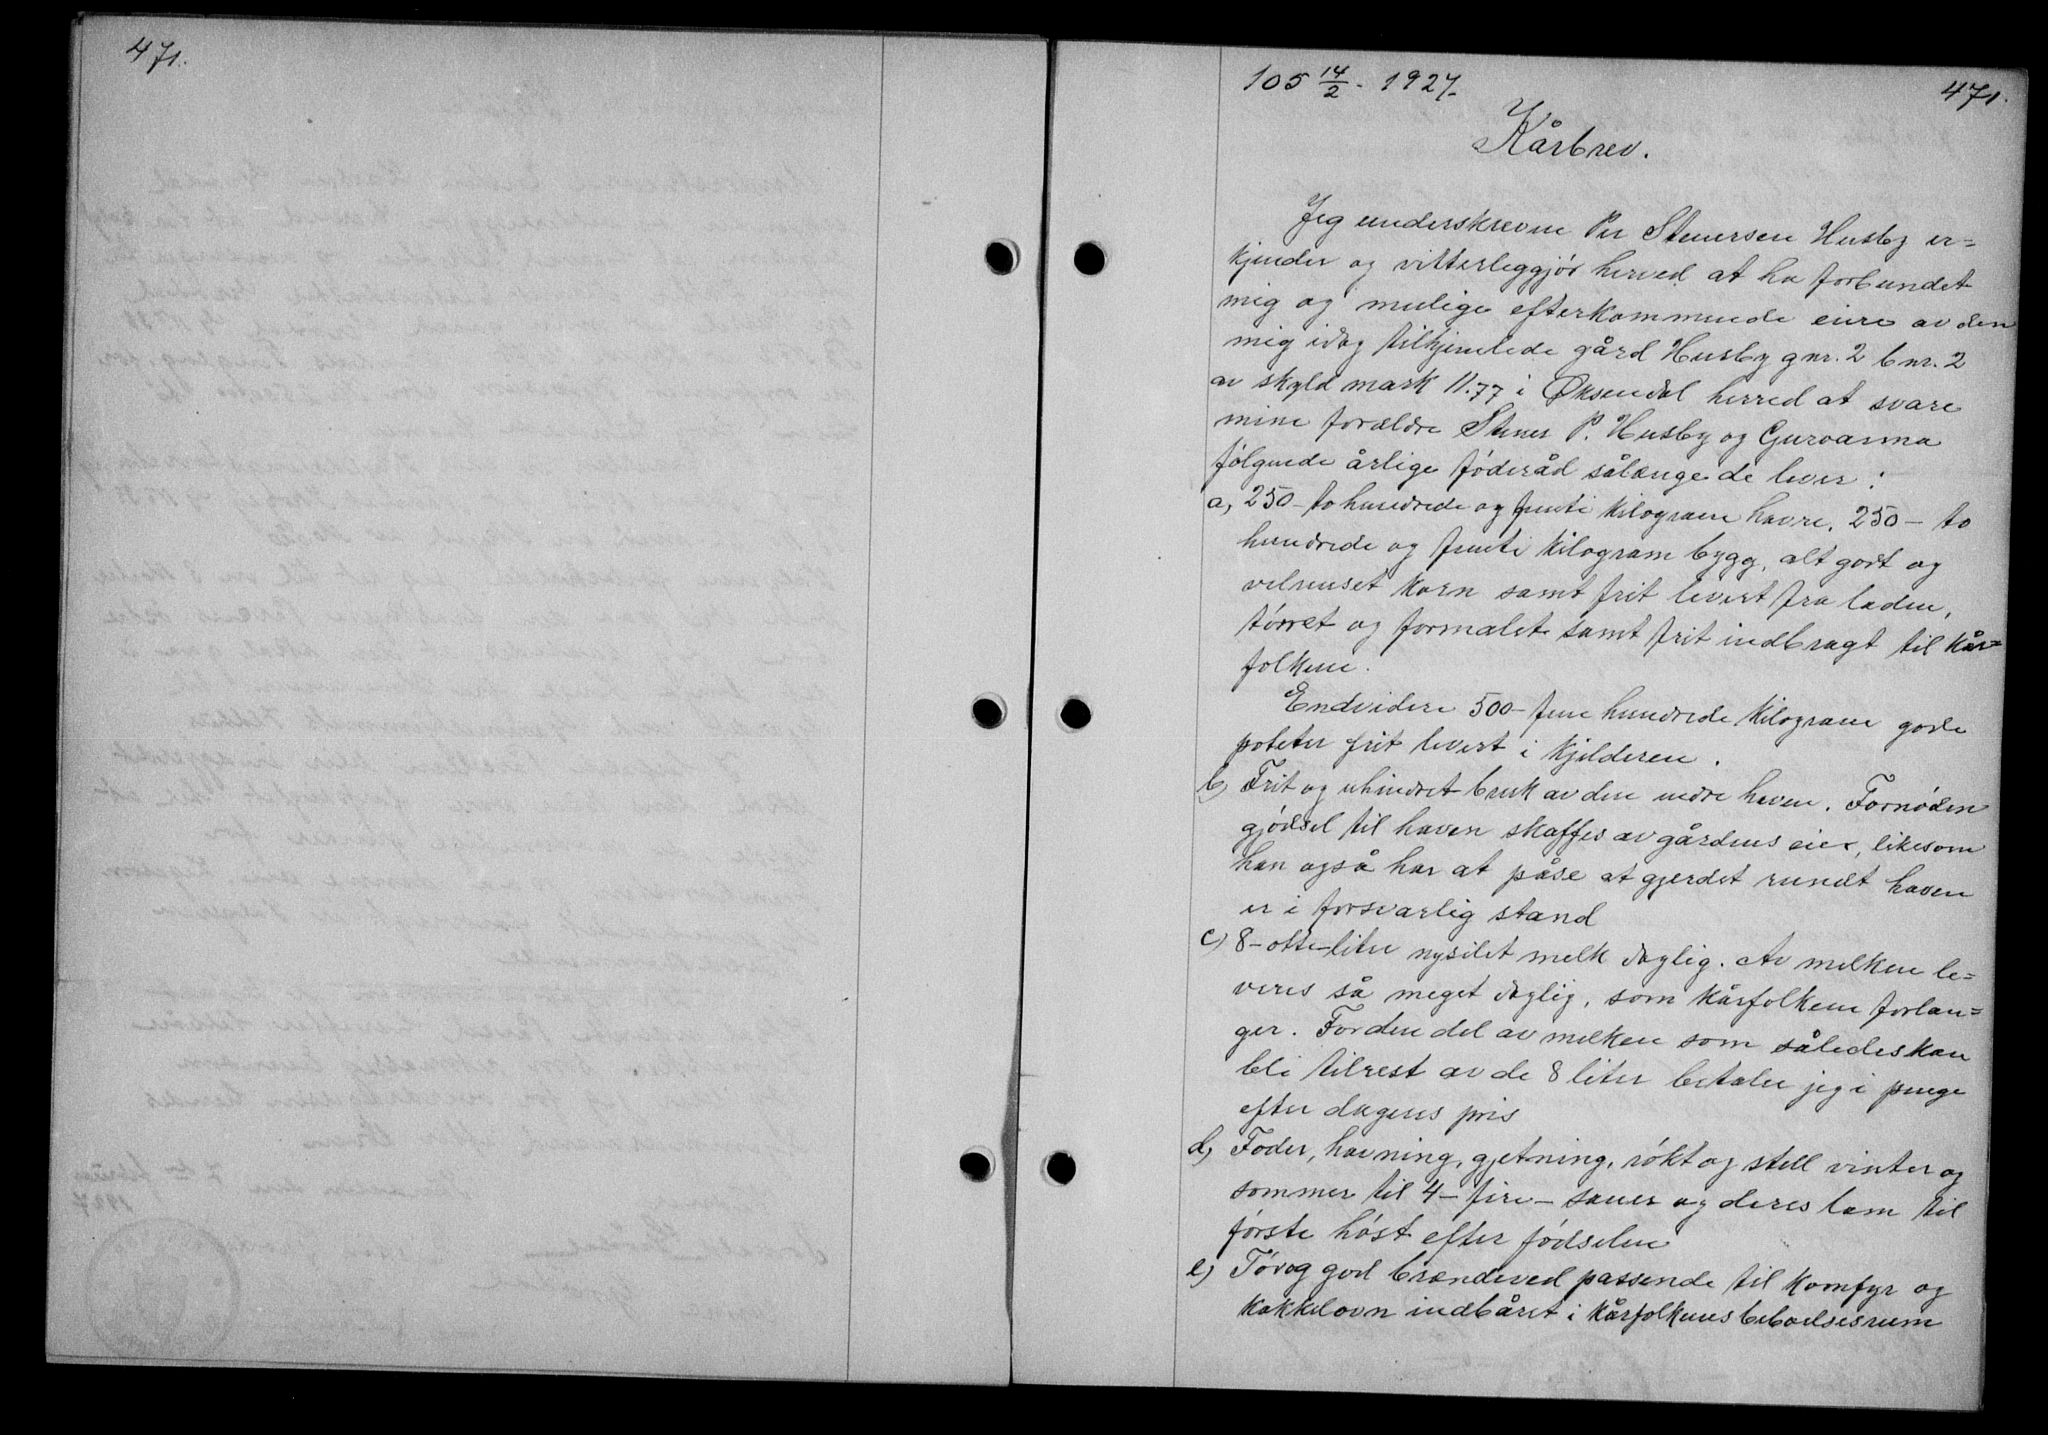 471.
105 14/2 - 1927.
471.
Kårbrev.
Jeg underskrevne Per Steuersen Husby er=
kjender og vitterleggjør herved at ha forbundet
mig og mulige efterkommende eiere av den
mig idag tilhjemlede gård Husby gnr. 2 bnr. 2
av skyld mark 11.77 i Øksendal herred at svare
mine forældre Steuer P. Husby og Guroanna
følgende årlige føderåd sålænge de lever:
a, 250 - to hundrede og femti kilogram havre, 250 - to
hundrede og femti kilogram bygg, alt godt og
velrenset korn samt frit levert fra laden,
tørret og formalet samt frit indbragt til kår=
folkene.
Endvidere 500 - fem hundrede kilogram gode
poteter frit levert i kjelderen.
b, Frit og uhindret bruk av den nedre haven. Fornøden
gjødsel til haven skaffes av gårdens eier, likesom
han også har at påse at gjerdet rundt haven
er i forsvarlig stand
c) 8 - otte liter nysilet melk daglig. Av melken le=
veres så meget daglig, som kårfolkene forlan=
ger. For den del av melken som således kan
bli tilrest av de 8 liter betaler jeg i penge
efter dagens pris
d, Foder, havning, gjetning, røkt og stell vinter og
sommer til 4 - fire - sauer og deres lam til
første høst efter fødselen
e) Tør og god brændeved passende til komfyr og
kakkelovn indbåret i kårfolkenes beboelsesrum